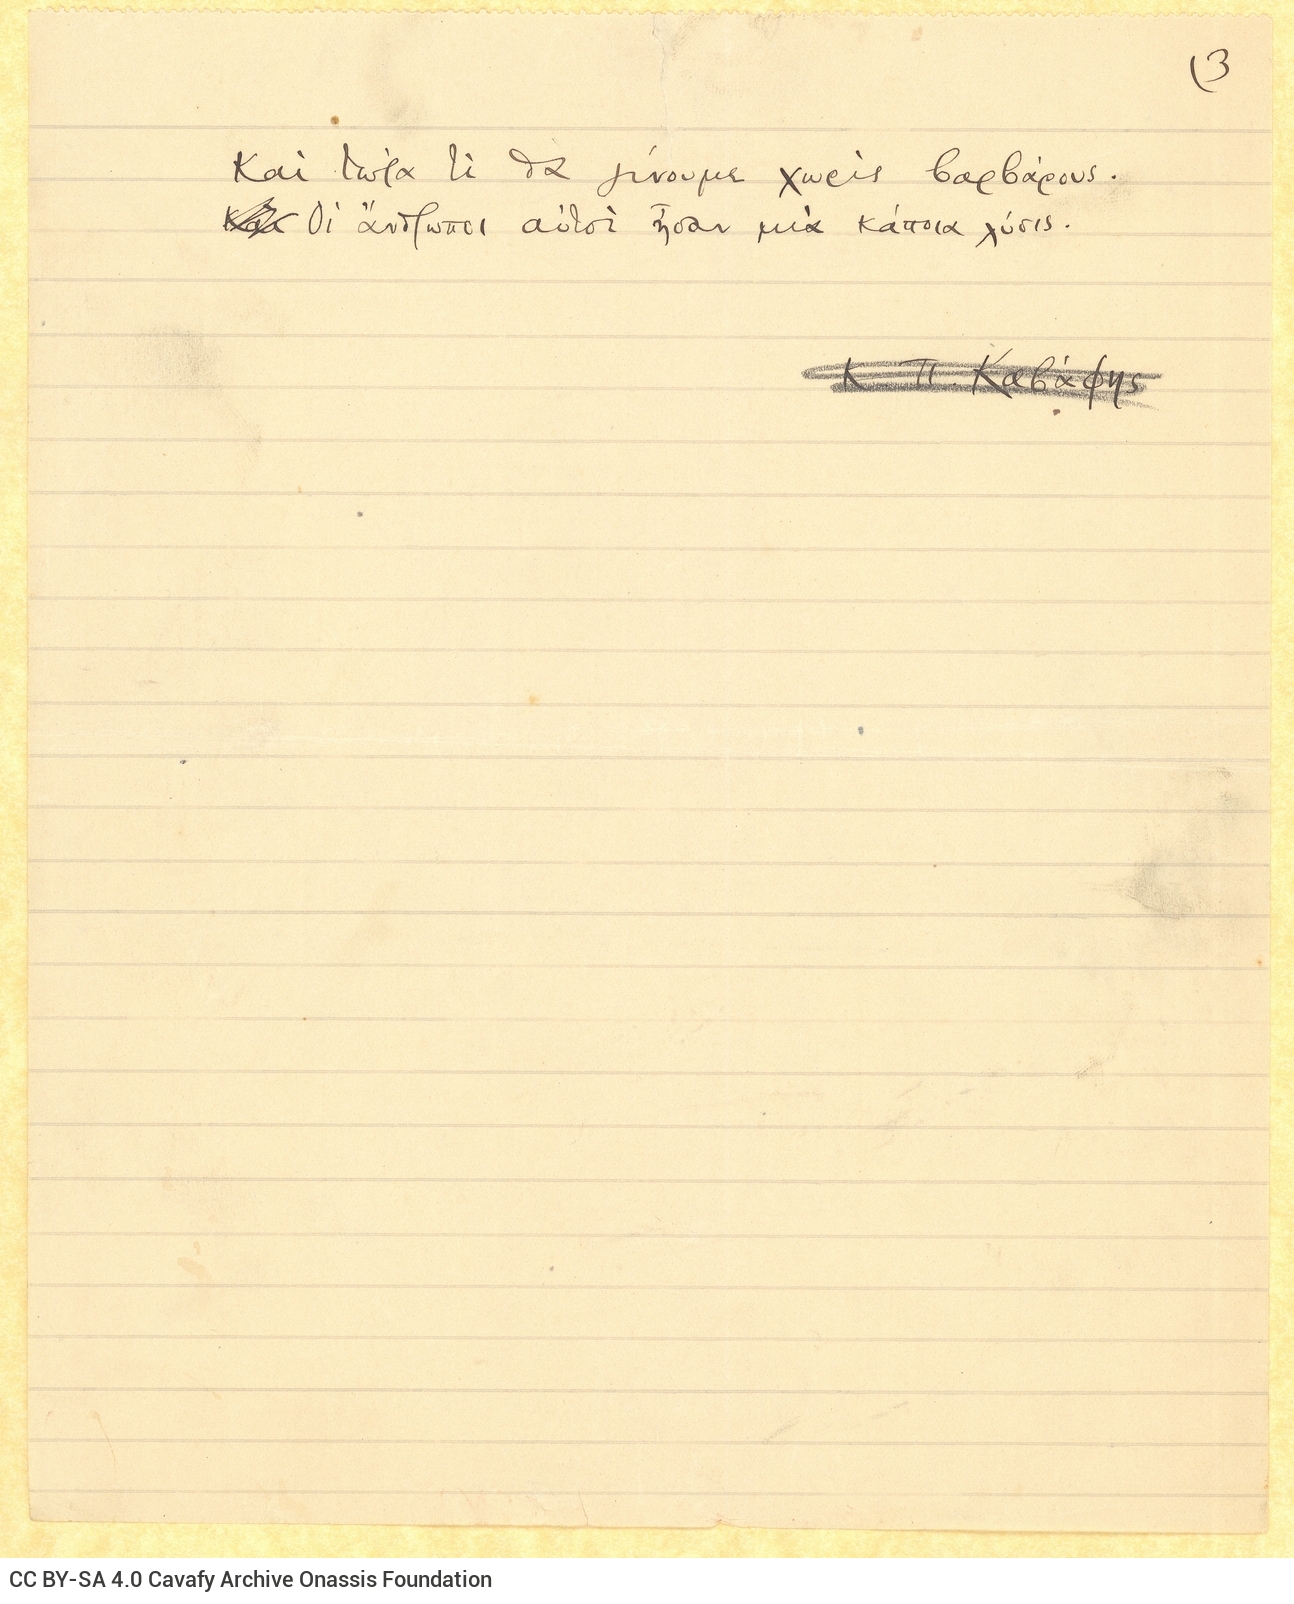 (3
Καὶ τώρα τί θὰ γίνουμε χωρὶς βαρβάρους.
Οἱ ἄνθρωποι αὐτοὶ ἦσαν μιὰ κάποια λύσις.
Κ. Π. Καβάφης
CC BY-SA 4.0 Cavafy Archive Onassis Foundation